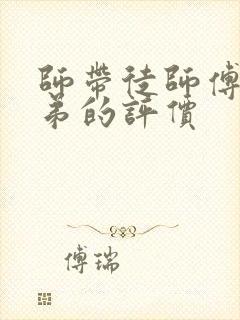 師帶徒師傅
弟的評價
傅瑞